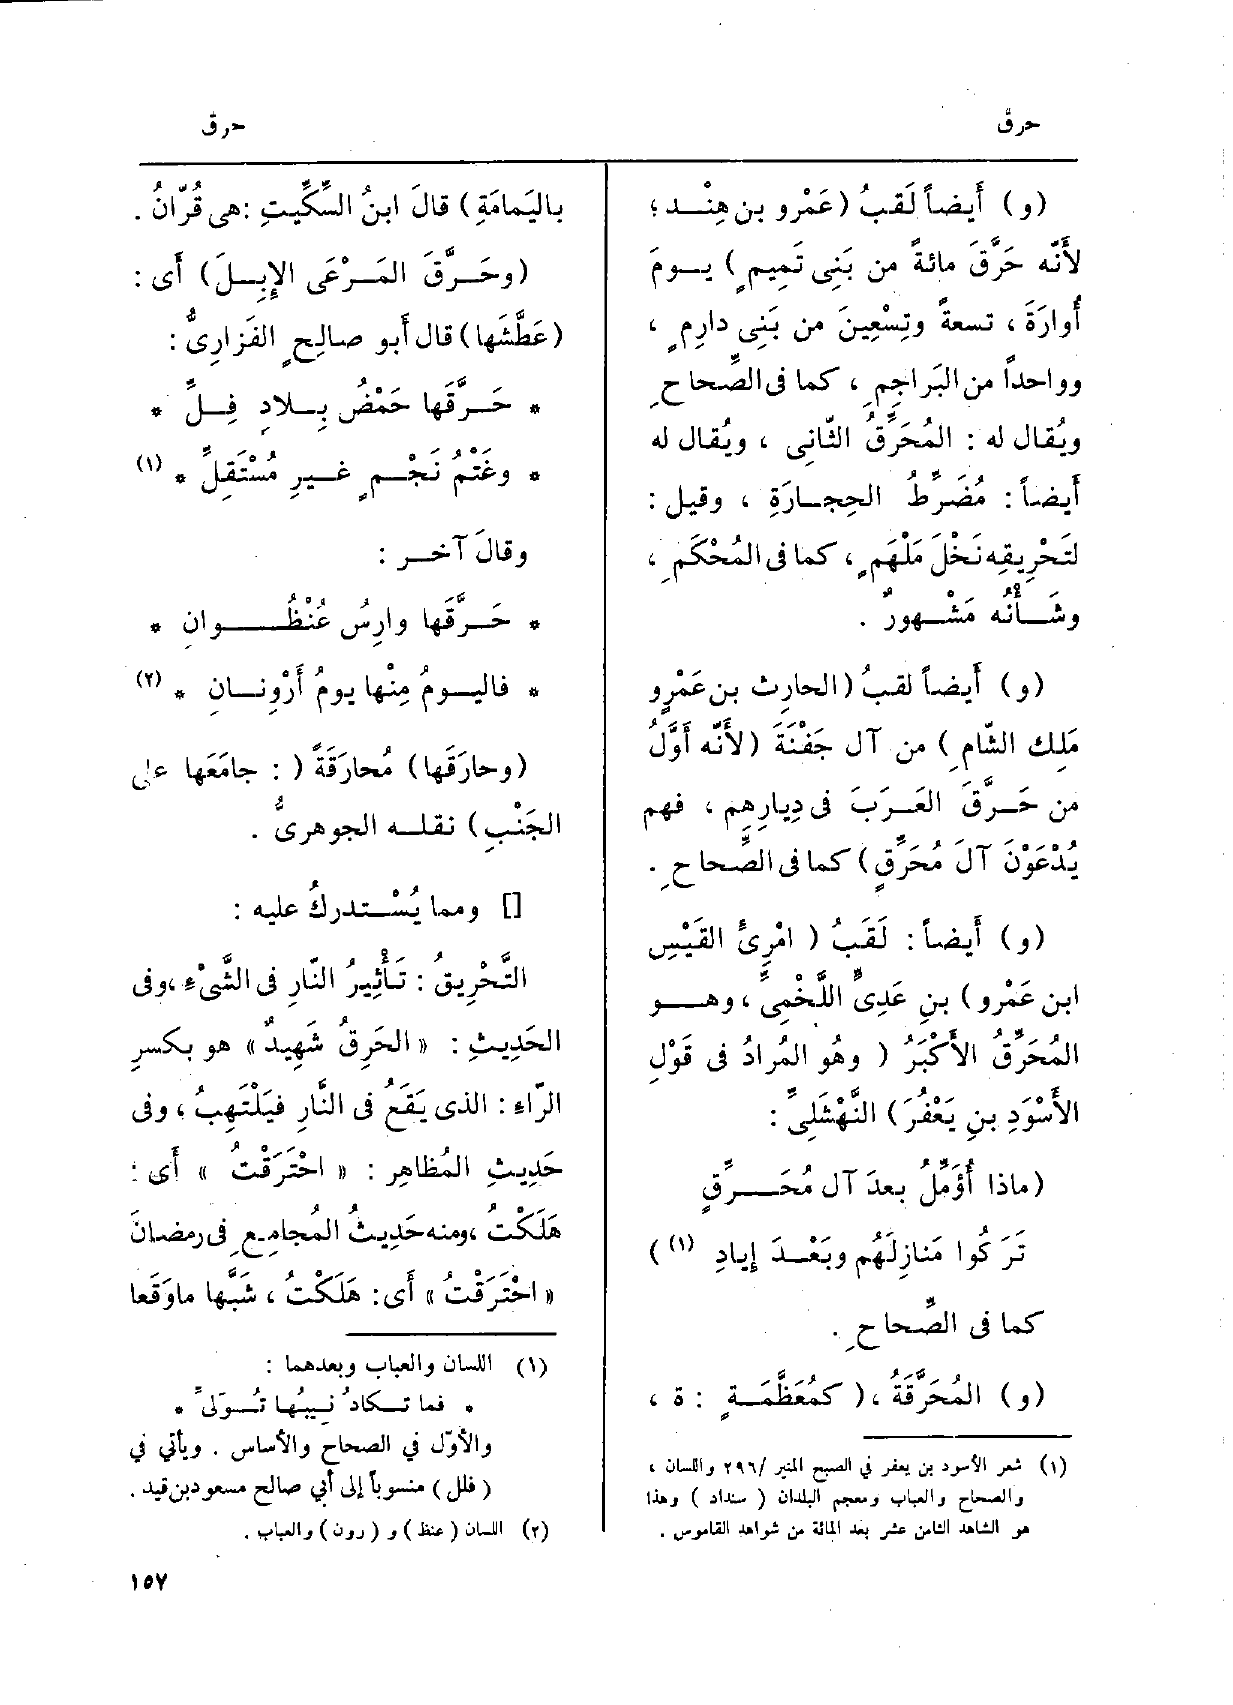 حرق
حرق
(و) أَيضاً لَقبُ (عَمْرِو بن هِنْد ؛
لأَنّه حَرَّقَ مائةً من بَنِى تَمِيمٍ) يومَ
أُوارَةَ ، تسعةً وتِسْعِينَ من بَنِى دارِمٍ ،
وواحداً من البَراجِمِ ، كما فى الصِّحاحِ
ويُقال له : المُحَرِّقُ الثّانِى ، ويُقال له
أَيضاً : مُضَرِّطُ الحِجارَةِ ، وقيل :
لتَحْرِيقِه نَخْلَ مَلْهَمٍ ، كما فى المُحْكَمِ ،
وشَأْنُه مَشْهورٌ .
(و) أَيضاً لقبُ (الحارِث بن عَمْرٍو
مَلِك الشّامِ) من آل جَفْنَةَ (لأَنّه أَوَّلُ
من حَرَّقَ العَرَبَ فى دِيارِهِم ، فهم
يُدْعَوْنَ آلَ مُحَرِّقٍ) كما فى الصِّحاحِ .
(و) أَيضاً : لَقَبُ ( امْرِئُ القَيْسِ
ابن عَمْرو) بنِ عَدِىٍّ اللَّخْمِىِّ ، وهو
المُحَرِّقُ الأَكْبَرُ ( وهُو المُرادُ فى قَوْلِ
الأَسْوَدِ بنِ يَعْفُرَ) النَّهْشَلِىِّ :
(ماذا أُؤَمِّلُ بعدَ آل مُحَرِّقٍ
تَرَكُوا مَنازِلَهُم وبَعْدَ إِيادِ (١) )
كما فى الصِّحاحِ .
(و) المُحَرَّقَةُ ، (كمُعَظَّمَةٍ : ة ،
(١) شعر الأسود بن يعفر في الصبح المنير /٢٩٦ واللسان ،
والصحاح والعباب ومعجم البلدان ( سنداد ) وهذا
هو الشاهد الثامن عشر بعد المائة من شواهد القاموس .
باليَمامَةِ) قالَ ابنُ السِّكِّيتِ : هى قُرّانُ .
(وحَرَّقَ المَرْعَى الإِبِلَ) أَى :
(عَطَّشَها) قال أَبو صالِحٍ الفَزارِىُّ :
* حَرَّقَها حَمْضُ بِلادٍ فِلِّ *
* وغَتْمُ نَجْمٍ غيرِ مُسْتَقِلِّ * (١)
وقالَ آخر :
* حَرَّقَها وارِسُ عُنْظُوانِ *
* فاليومُ مِنْها يومُ أَرْوِنانِ * (٢)
(وحارَقَها) مُحارَقَةً ( : جامَعَها على
الجَنْبِ) نقله الجوهرىُّ .
[] ومما يُسْتدركُ عليه :
التَّحْرِيقُ : تَأْثِيرُ النّارِ فى الشَّىْءِ ، وفى
الحَدِيثِ : « الحَرِقُ شَهِيدٌ » هو بكسرِ
الرّاءِ : الذى يَقَعُ فى النَّارِ فيَلْتَهِبُ ، وفى
حَدِيثِ المُظاهِرِ : « احْتَرَقْتُ » أَى :
هَلَكْتُ ، ومنه حَدِيثُ المُجامِعِ فى رمضانَ
« احْتَرَقْتُ » أَى : هَلَكْتُ ، شَبَّها ماوَقَعا
(١) اللسان والعباب وبعدهما :
* فما تكادُ نِيبُها تُوَلِّى *
والأوّل في الصحاح والأساس . ويأتي في
( فلل ) منسوباً إلى أبي صالح مسعود بن قيد .
(٢) اللسان ( عنظ ) و ( رون ) والعباب .
١٥٧